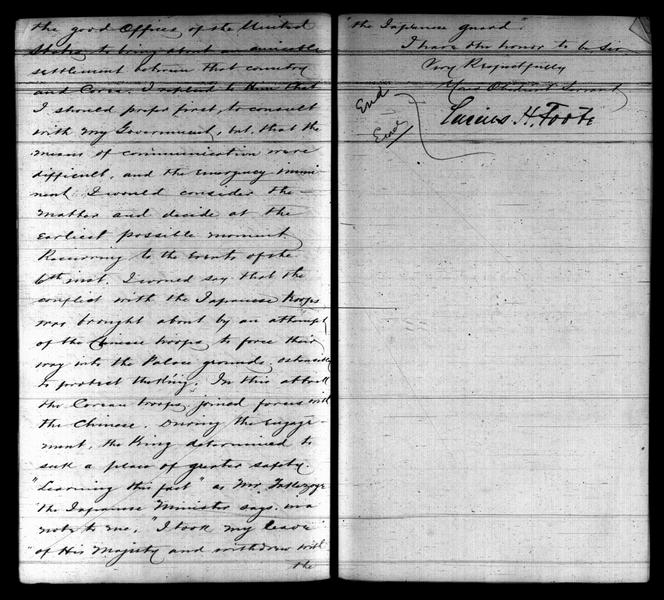 the good Offices, of the United
States, to bring about an amicable
settlement between that country
and Corea. I replied to Him that
I should prefer first, to consult
with my Government, but, that the
means of communication were
difficult, and the emergency immi-
nent. I would consider the
matter and decide at the
Earliest possible moment
Recurring to the Events of the
6th inst. I would say that the
conflict with the Japanese troops
was brought about by an attempt
of the Chinese troops, to force their
way into the Palace grounds, ostensibly
to protect the King. In this attack
the Corean troops, joined forces with
the Chinese. During the Engage-
ment, the King determined to
seek a place of greater safety.
"Learning this fact" as Mr.
the Japanese Minister says, in a
note to me, "I took my leave
"of His Majesty and withdrew with
the
"the Japanese guard".
I have the honor to be Sir
Very Respectfully
Your Obedient Servant
Lucius H. Foote
End
Encs